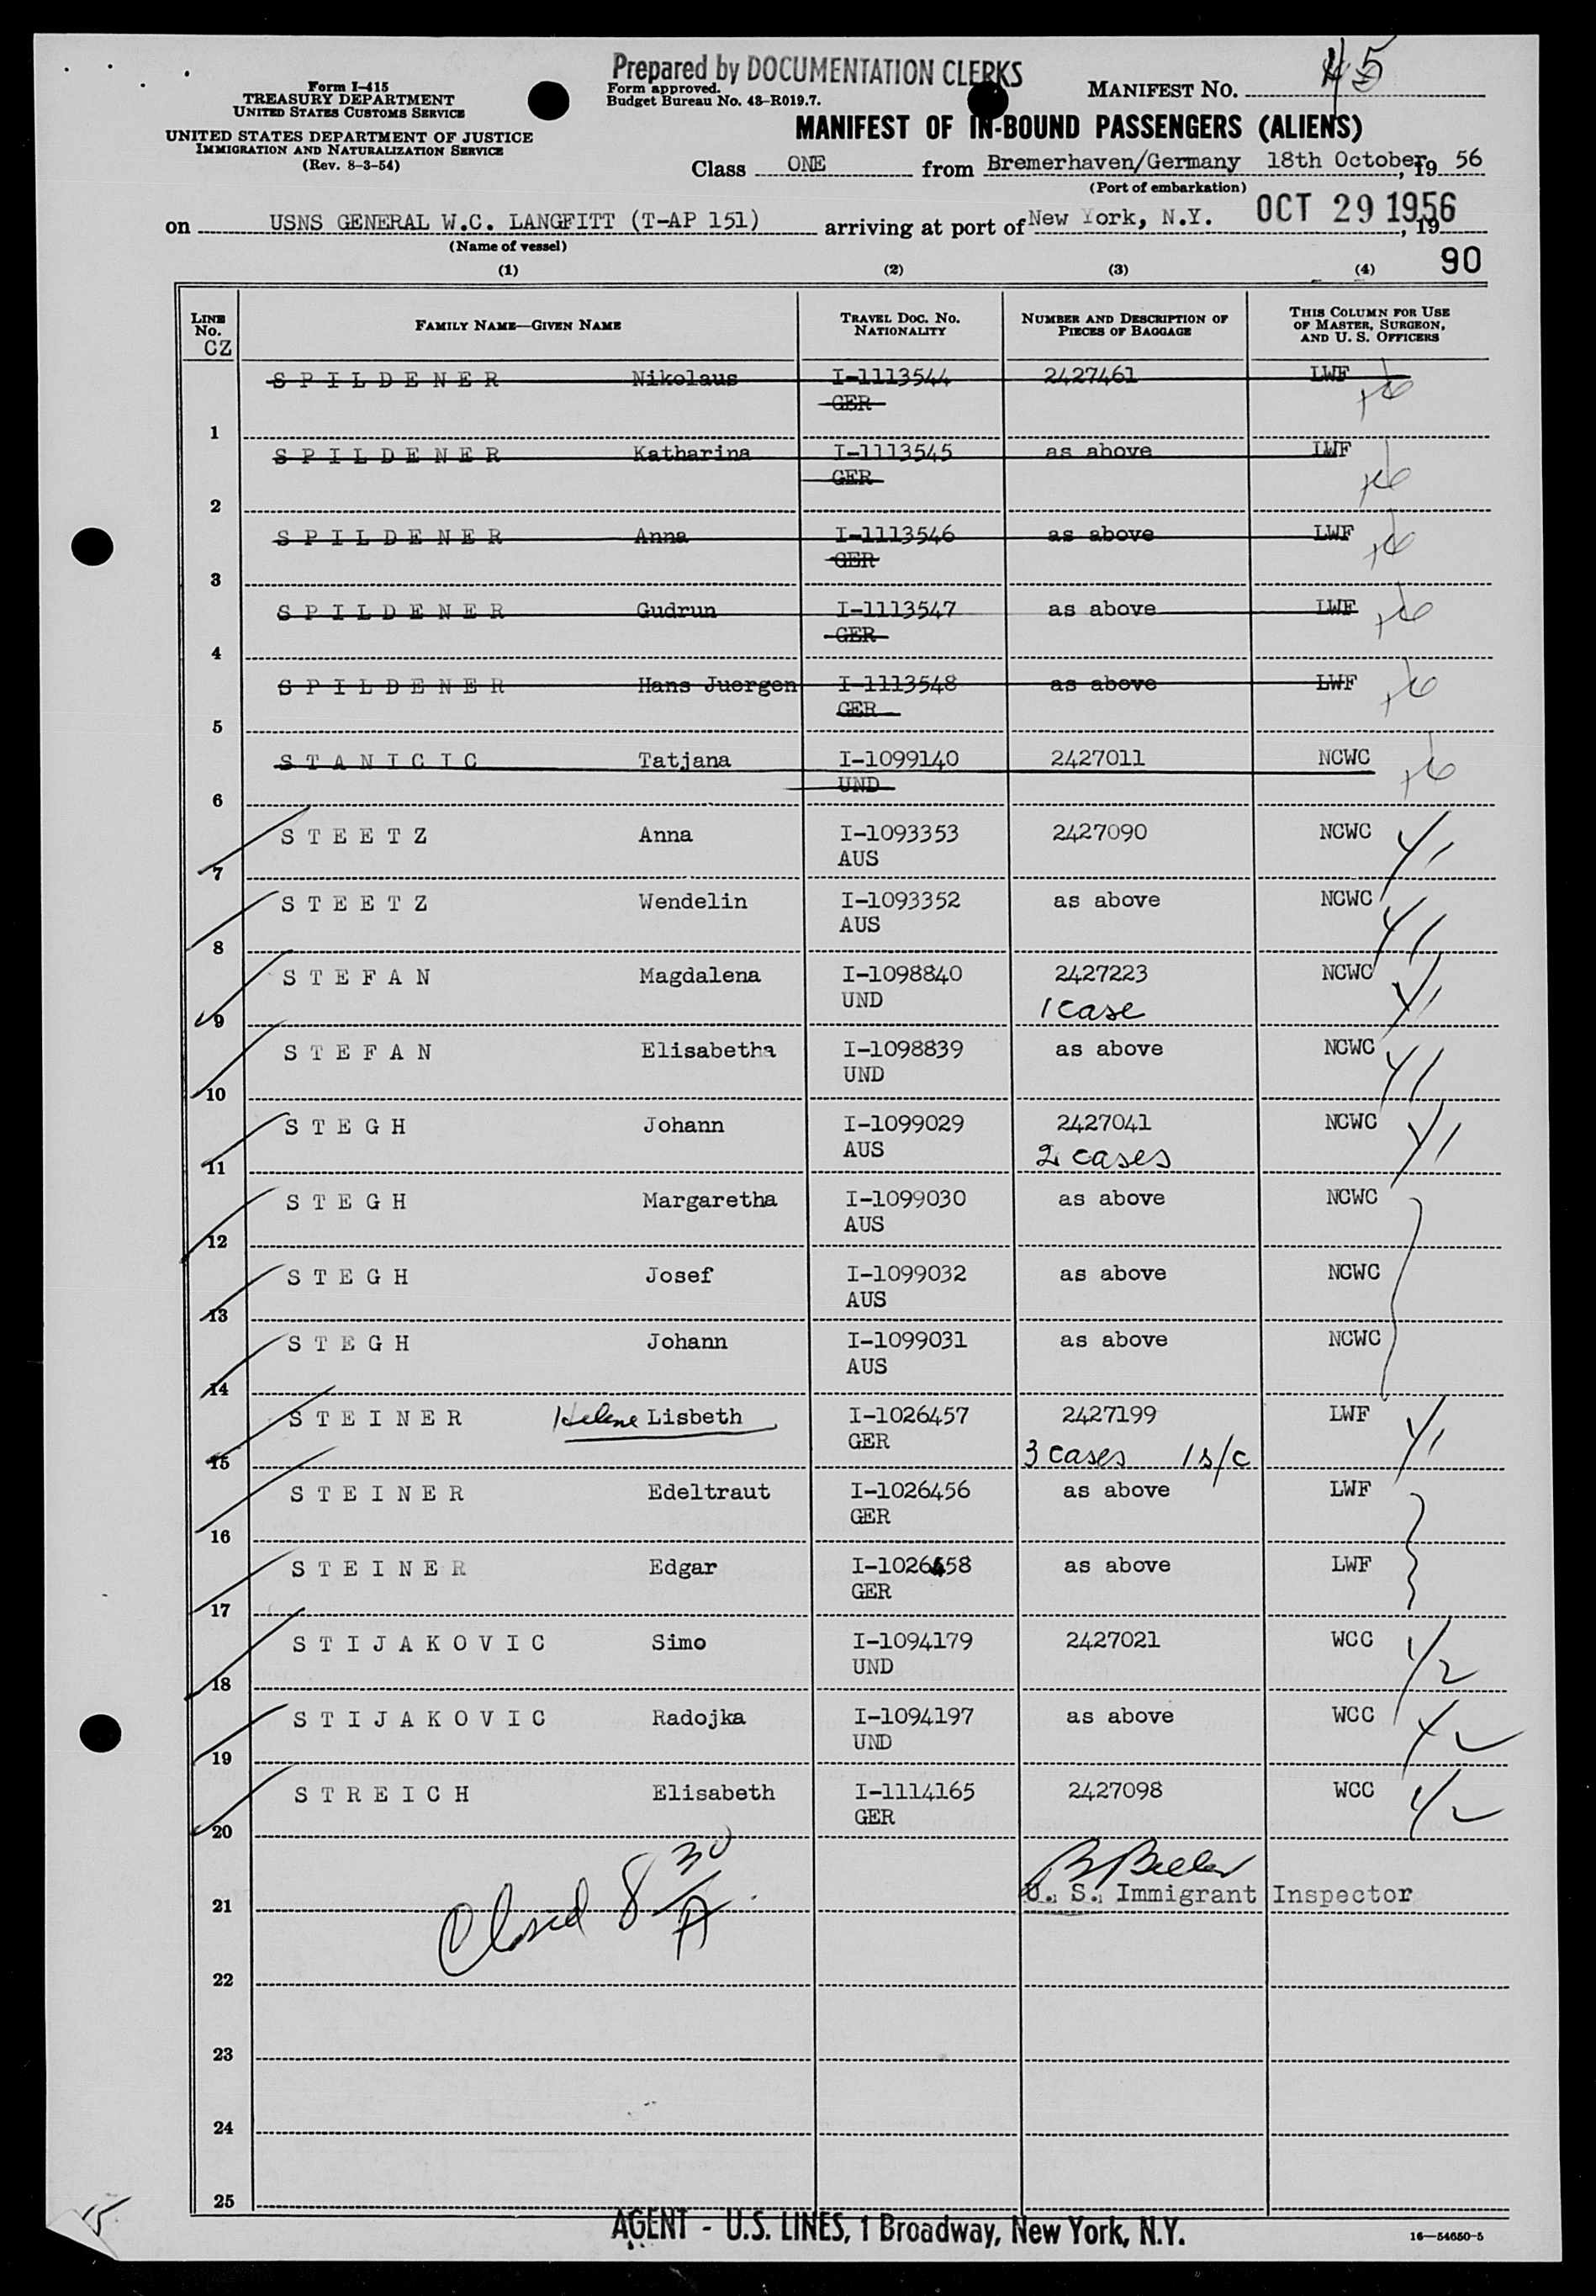 Prepared by DOCUMENTATION CLERKS
Form I-415
TREASURY DEPARTMENT
UNITED STATES CUSTOMS SERVICE
UNITED STATES DEPARTMENT OF JUSTICE
IMMIGRATION AND NATURALIZATION SERVICE
(Rev. 8-3-54)
Form approved.
Budget Bureau No. 43-R019.7.
MANIFEST NO. 45
MANIFEST OF IN-BOUND PASSENGERS (ALIENS)
Class ONE from Bremerhaven/Germany 18th October, 19 56
(Port of embarkation)
on USNS GENERAL W.C. LANGFITT (T-AP 151) arriving at port of New York, N.Y. OCT 29 1956, 19
(Name of vessel)
90
(1) (2) (3) (4)
LINE No. CZ FAMILY NAME—GIVEN NAME TRAVEL DOC. NO. NATIONALITY NUMBER AND DESCRIPTION OF PIECES OF BAGGAGE THIS COLUMN FOR USE OF MASTER, SURGEON, AND U. S. OFFICERS
S P I L D E N E R Nikolaus I-1113544 2427461 LWF
GER
1
S P I L D E N E R Katharina I-1113545 as above LWF
GER
2
S P I L D E N E R Anna I-1113546 as above LWF
GER
3
S P I L D E N E R Gudrun I-1113547 as above LWF
GER
4
S P I L D E N E R Hans Juergen I-1113548 as above LWF
GER
5
S T A N I C I C Tatjana I-1099140 2427011 NCWC
UND
6
S T E E T Z Anna I-1093353 2427090 NCWC
AUS
7
S T E E T Z Wendelin I-1093352 as above NCWC
AUS
8
S T E F A N Magdalena I-1098840 2427223 NCWC
UND 1 case
9
S T E F A N Elisabetha I-1098839 as above NCWC
UND
10
S T E G H Johann I-1099029 2427041 NCWC
AUS 2 cases
11
S T E G H Margaretha I-1099030 as above NCWC
AUS
12
S T E G H Josef I-1099032 as above NCWC
AUS
13
S T E G H Johann I-1099031 as above NCWC
AUS
14
S T E I N E R Helene Lisbeth I-1026457 2427199 LWF
GER 3 cases 1 s/c
15
S T E I N E R Edeltraut I-1026456 as above LWF
GER
16
S T E I N E R Edgar I-1026458 as above LWF
GER
17
S T I J A K O V I C Simo I-1094179 2427021 WCC
UND
18
S T I J A K O V I C Radojka I-1094197 as above WCC
UND
19
S T R E I C H Elisabeth I-1114165 2427098 WCC
GER
20
Closed 8 30/A
U. S. Immigrant Inspector
21
22
23
24
25
AGENT - U.S. LINES, 1 Broadway, New York, N.Y.
16—54650-5